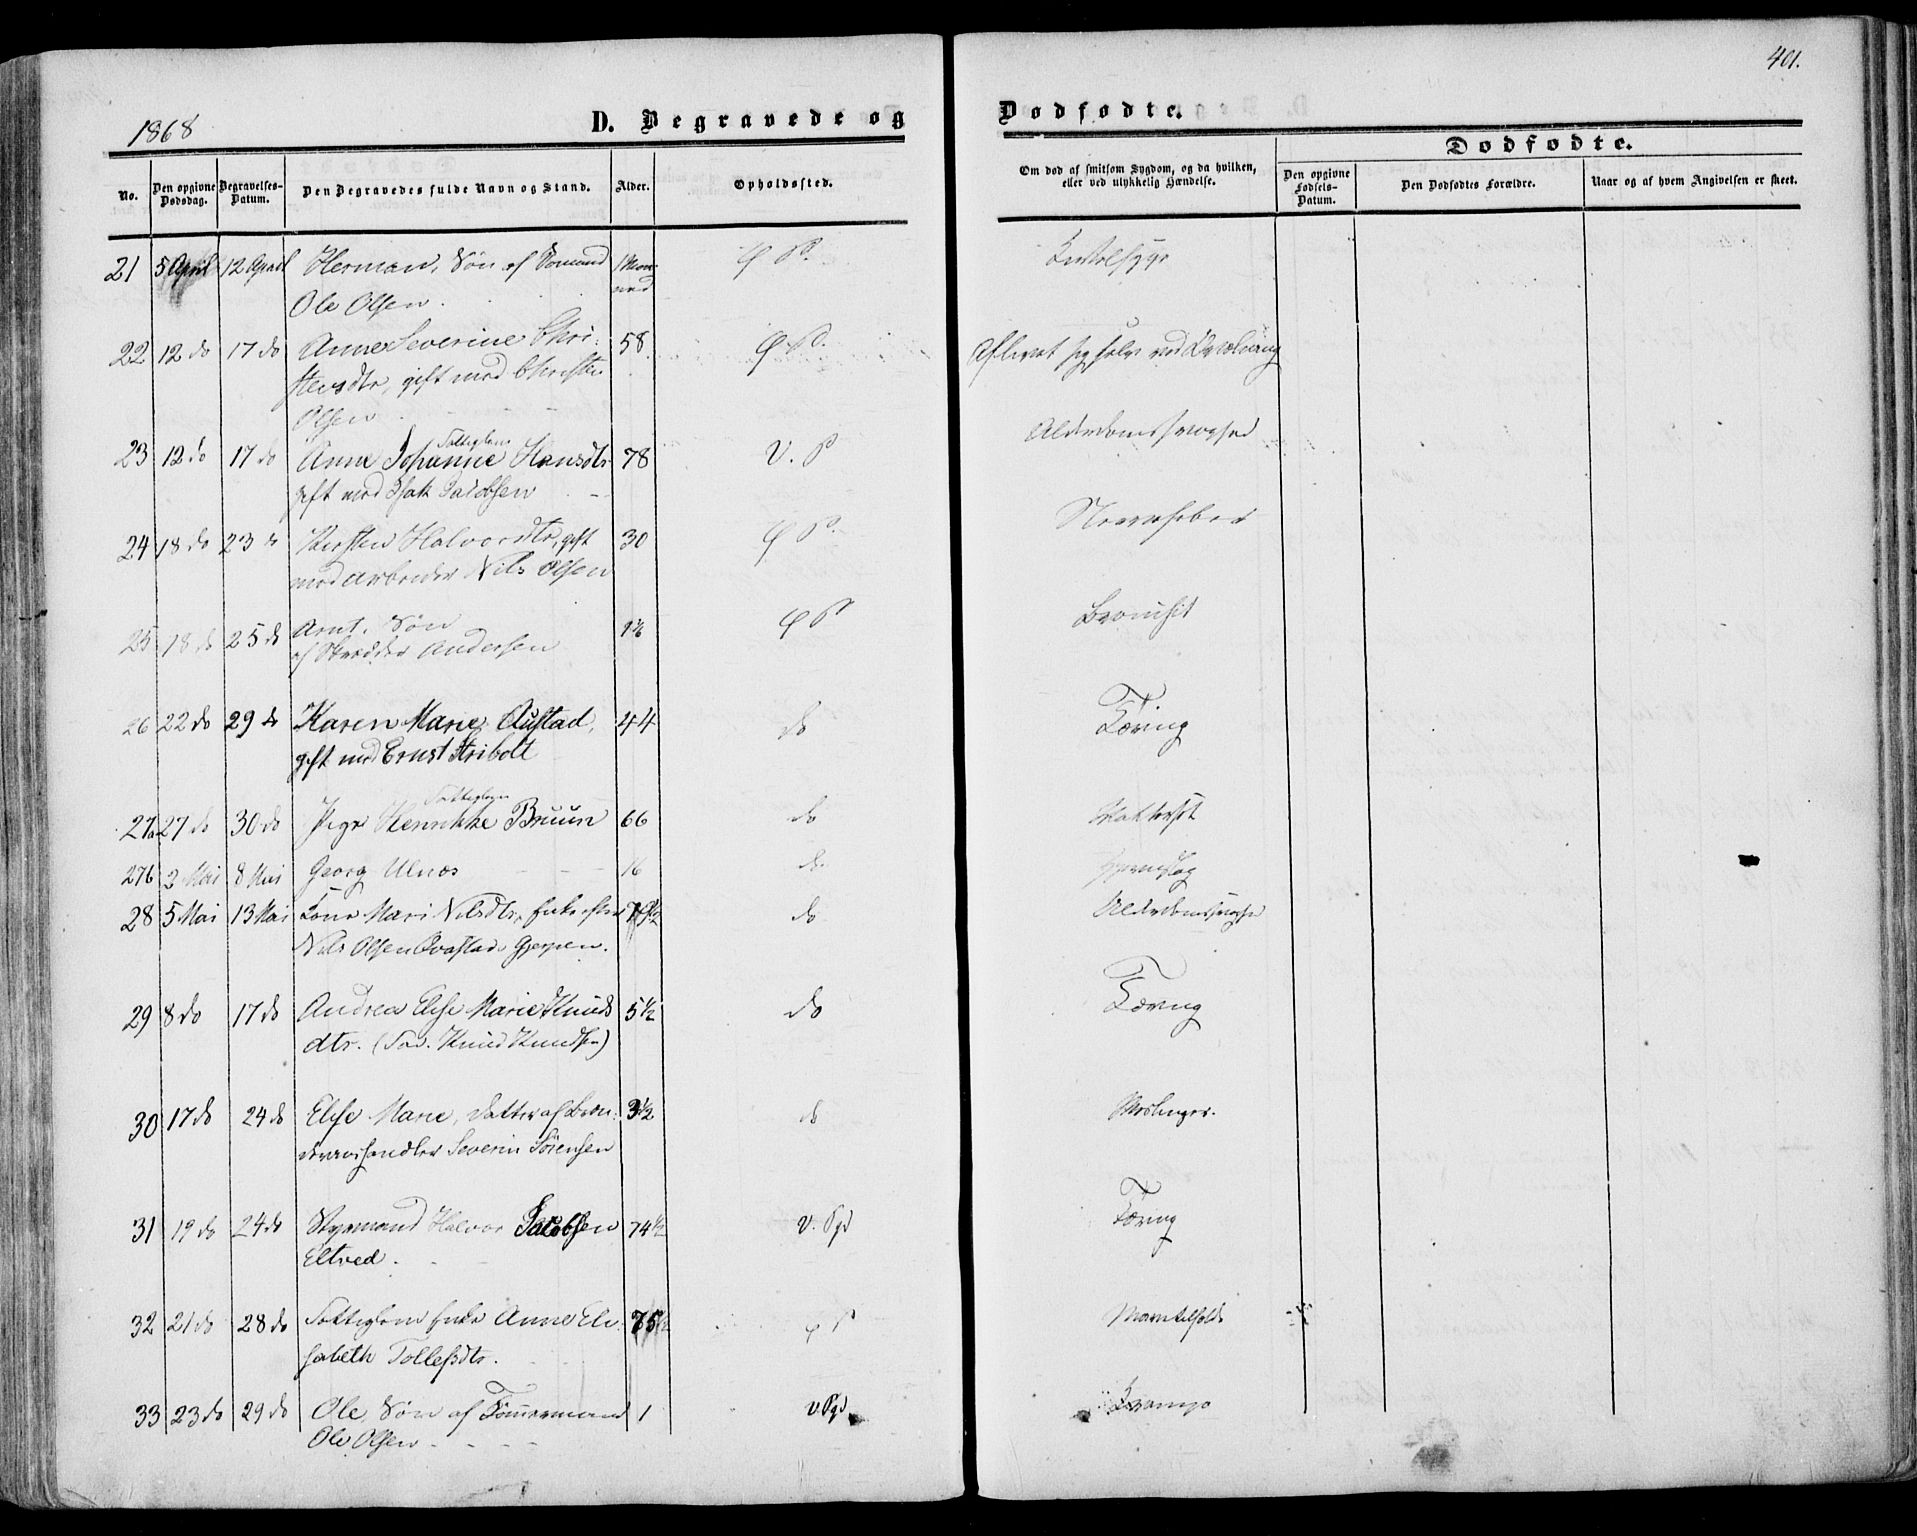 401.
1868
D. Begravede og Dødfødte.
Dødfødte.
No.
Den opgivne Dødsdag.
Begravelses-Datum.
Den Begravedes fulde Navn og Stand.
Alder.
Opholdssted.
Om død af smitsom Sygdom, og da hvilken, eller ved ulykkelig Hændelse.
Den opgivne Fødsels-Datum.
Den Dødfødtes Forældre.
Naar og af hvem Angivelsen er skeet.
21 5 April 12 April Herman, Søn af 1 Maa-
Ole Olsen. ned
22 12 do 17 do Anne Severine Chri- 58
stensdtr, gift med Christen
Olsen
Alderdomssvaghed
23 12 do 17 do Anne Johanne Hansdtr 78 V. P
Fattiglem
gift med Isak Jacobsen
24 18 do 23 do Kirsten Halvordtr, gift 30 Nervefeber
med Arbeider Nils Olsen
25 18 do 25 do Arnt, Søn
af Skrædder Andersen
26 22 do 29 do Karen Marie Austad, 44 do Tæring
gift med Ernst Stribolt
Fattiglem
27a 27 do 30 do Pige Henrikke Bruun 66 do
27b 3 Mai 8 Mai Georg Ulnæs 16 do
28 5 Mai 13 Mai Tone Mari Nilsdtr, Enke efter do Alderdomssvaghed
Nils Olsen Gjerpen.
29 8 do 17 do Andrea Elise Marie Knuds 5½ do Tæring
dtr. (Fad. Knud Knudsen)
30 17 do 24 do Elise Marie, Datter af Bræn- 3½ do Meslinger.
deviinshandler Severin Sörensen
31 19 do 24 do Styrmand Halvor Jacobsen 74½ V. Pgd Tæring
Eltved.
32 21 do 28 do Fattiglem Enke Anne Eli- 75½
sabeth Tollefsdtr.
33 23 do 29 do Ole, Søn af Tömmermand 1 V Pgd Krampe
Ole Olsen